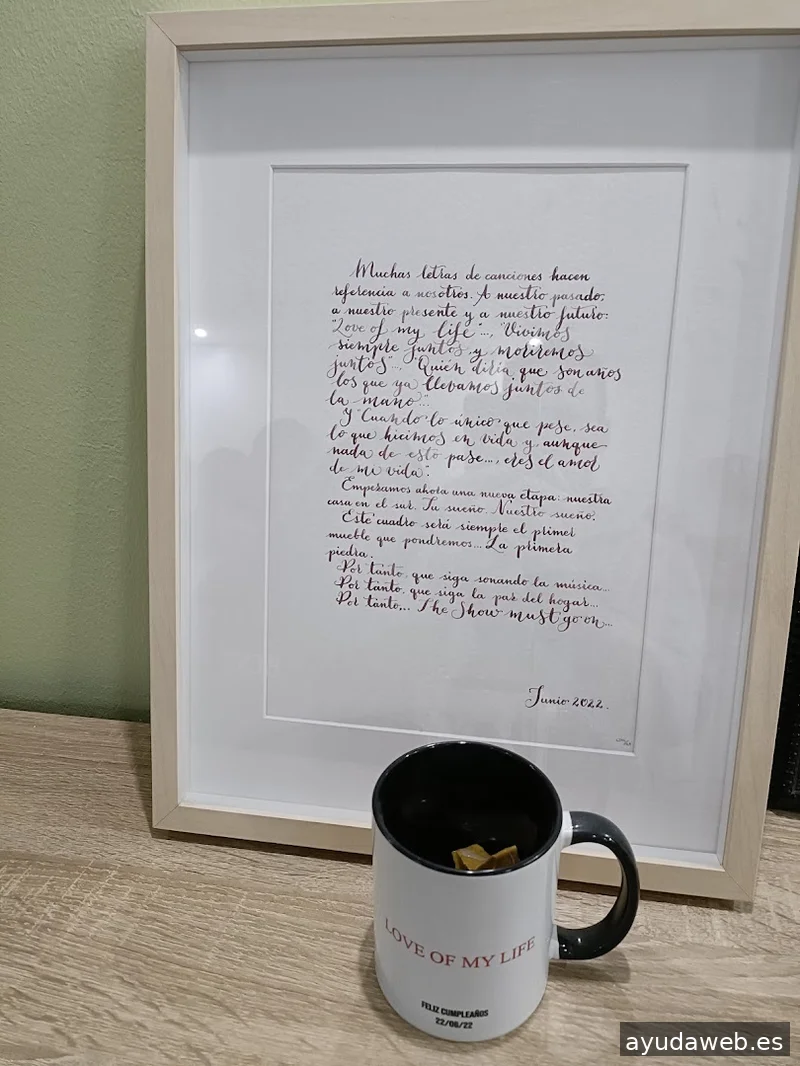 Muchas letras de canciones hacen
referencia a nosotros. A nuestro pasado;
a nuestro presente y a nuestro futuro:
"Love of my life"..., "Vivimos
siempre juntos y moriremos
juntos"... "Quién diría que son años
los que ya llevamos juntos de
la mano"...
Y "Cuando lo único que pese, sea
lo que hicimos en vida y aunque
nada de esto pase..., eres el amor
de mi vida".
Empezamos ahora una nueva etapa: nuestra
casa en el sur. Tu sueño. Nuestro sueño.
Este cuadro será siempre el primer
mueble que pondremos... La primera
piedra.
Por tanto, que siga sonando la música...
Por tanto, que siga la paz del hogar...
Por tanto... The Show must go on...
Junio 2022.
LOVE OF MY LIFE
FELIZ CUMPLEAÑOS
22/06/22
ayudaweb.es